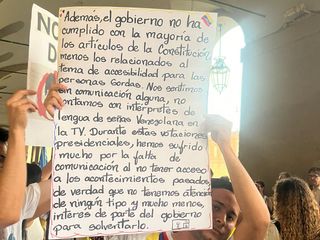 "Además, el gobierno no ha
cumplido con la mayoría de
los artículos de la Constitución
menos los relacionados al
tema de accesibilidad para las
personas Sordas. Nos sentimos
sin comunicación alguna, no
contamos con intérpretes de
lengua de señas Venezolana en
la TV. Durante estas votaciones
presidenciales, hemos sufrido
mucho por la falta de
comunicación al no tener acceso
a los acontecimientos pasados,
de verdad que no tenemos atención
de ningún tipo y mucho menos,
interés de parte del gobierno
para solventarlo.
NO
DE